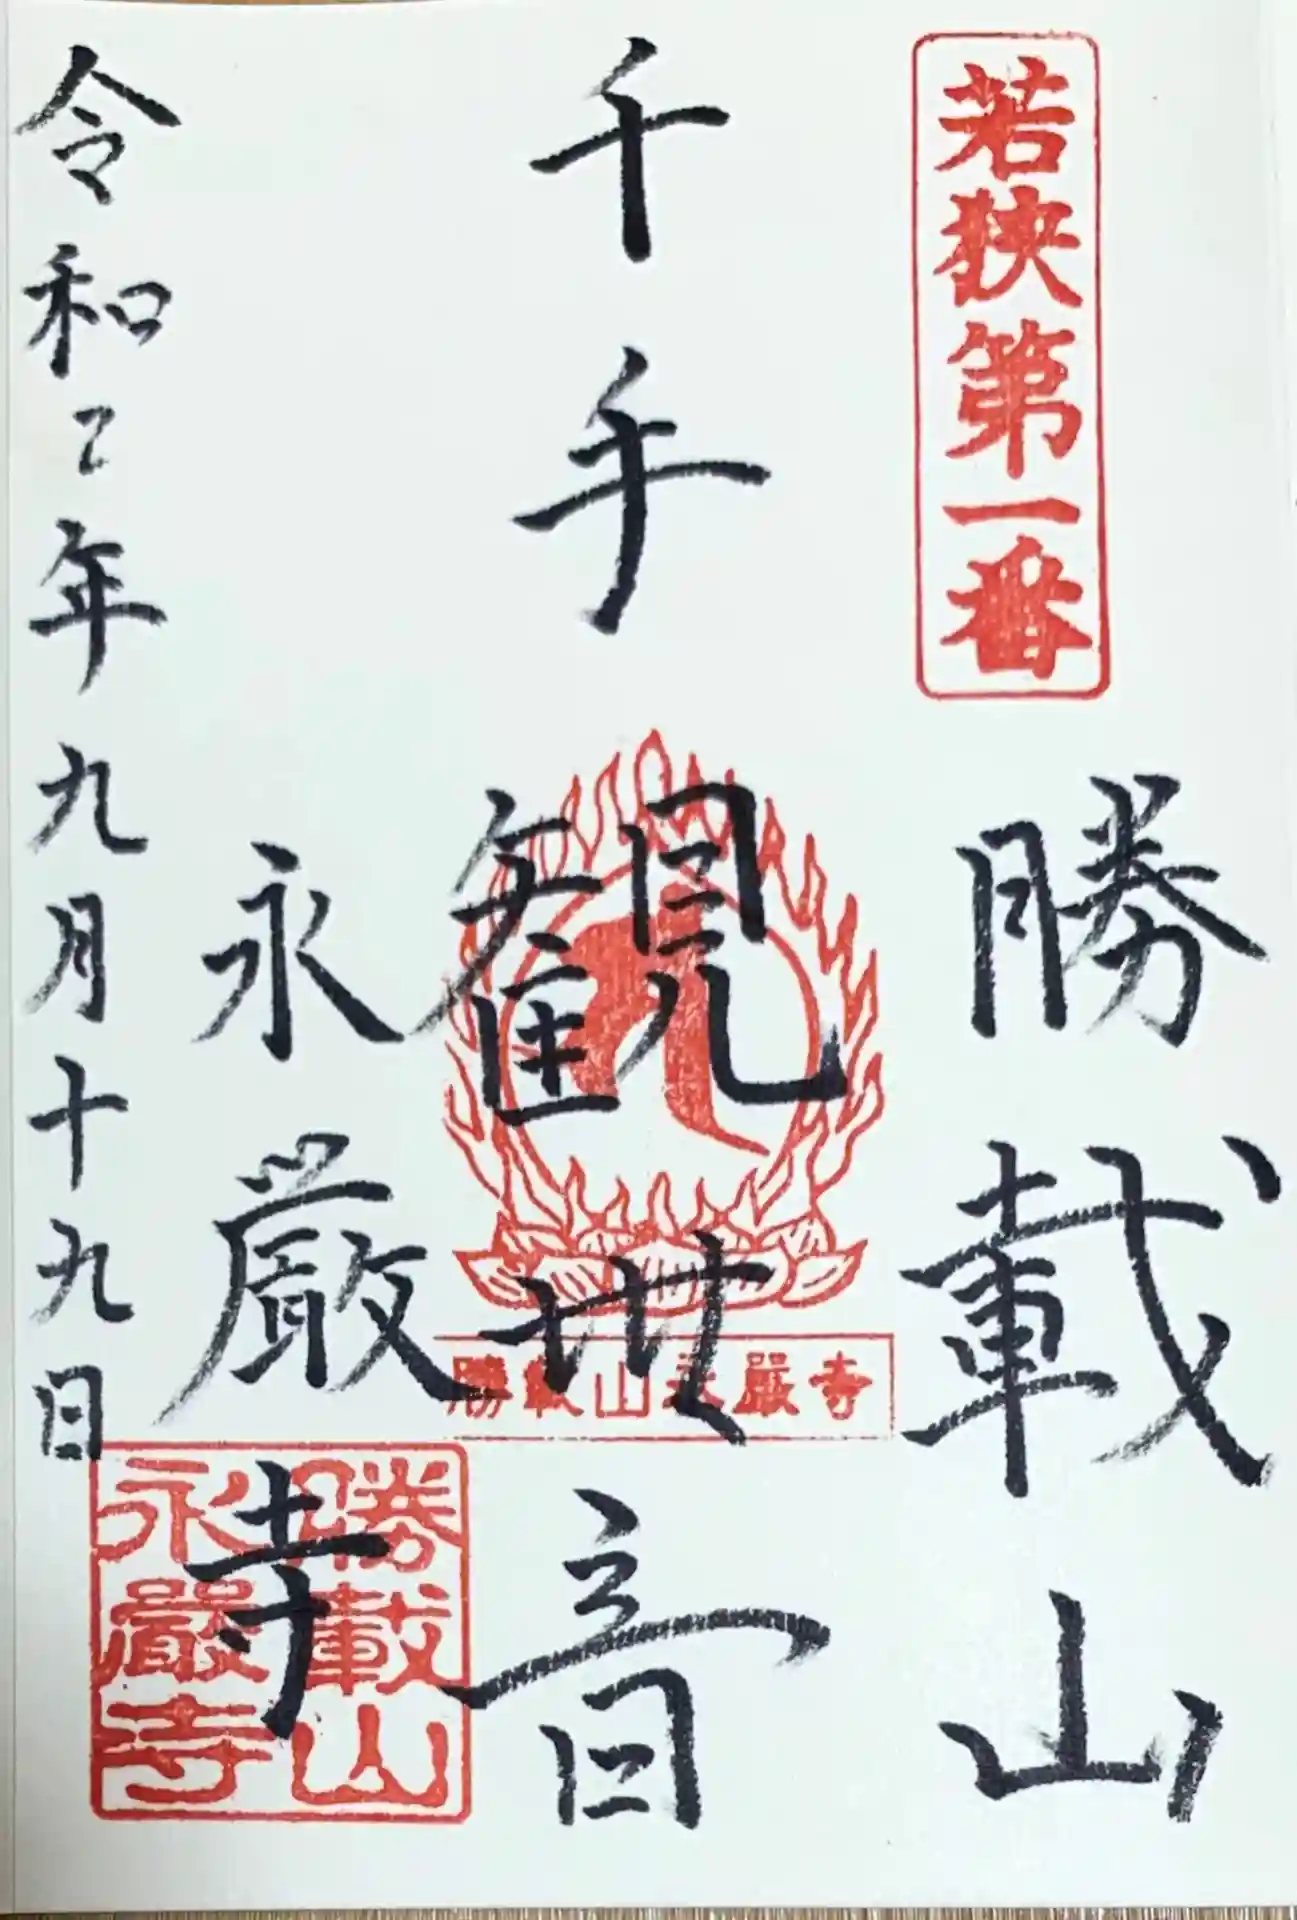 若狭第一番
勝載山
千手観世音
勝載山永厳寺
永厳寺
勝載山
永厳寺
令和二年九月十九日